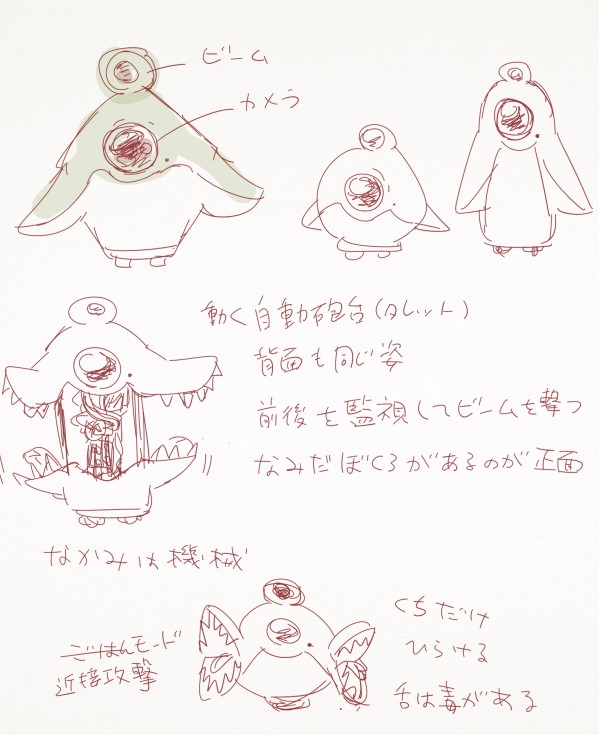 ビーム
カメラ
動く自動砲台(タレット)
背面も同じ姿
前後を監視してビームを撃つ
なみだぼくろがあるのが正面
なかみは機械
ごはんモード
近接攻撃
くちだけ
ひらける
舌は毒がある